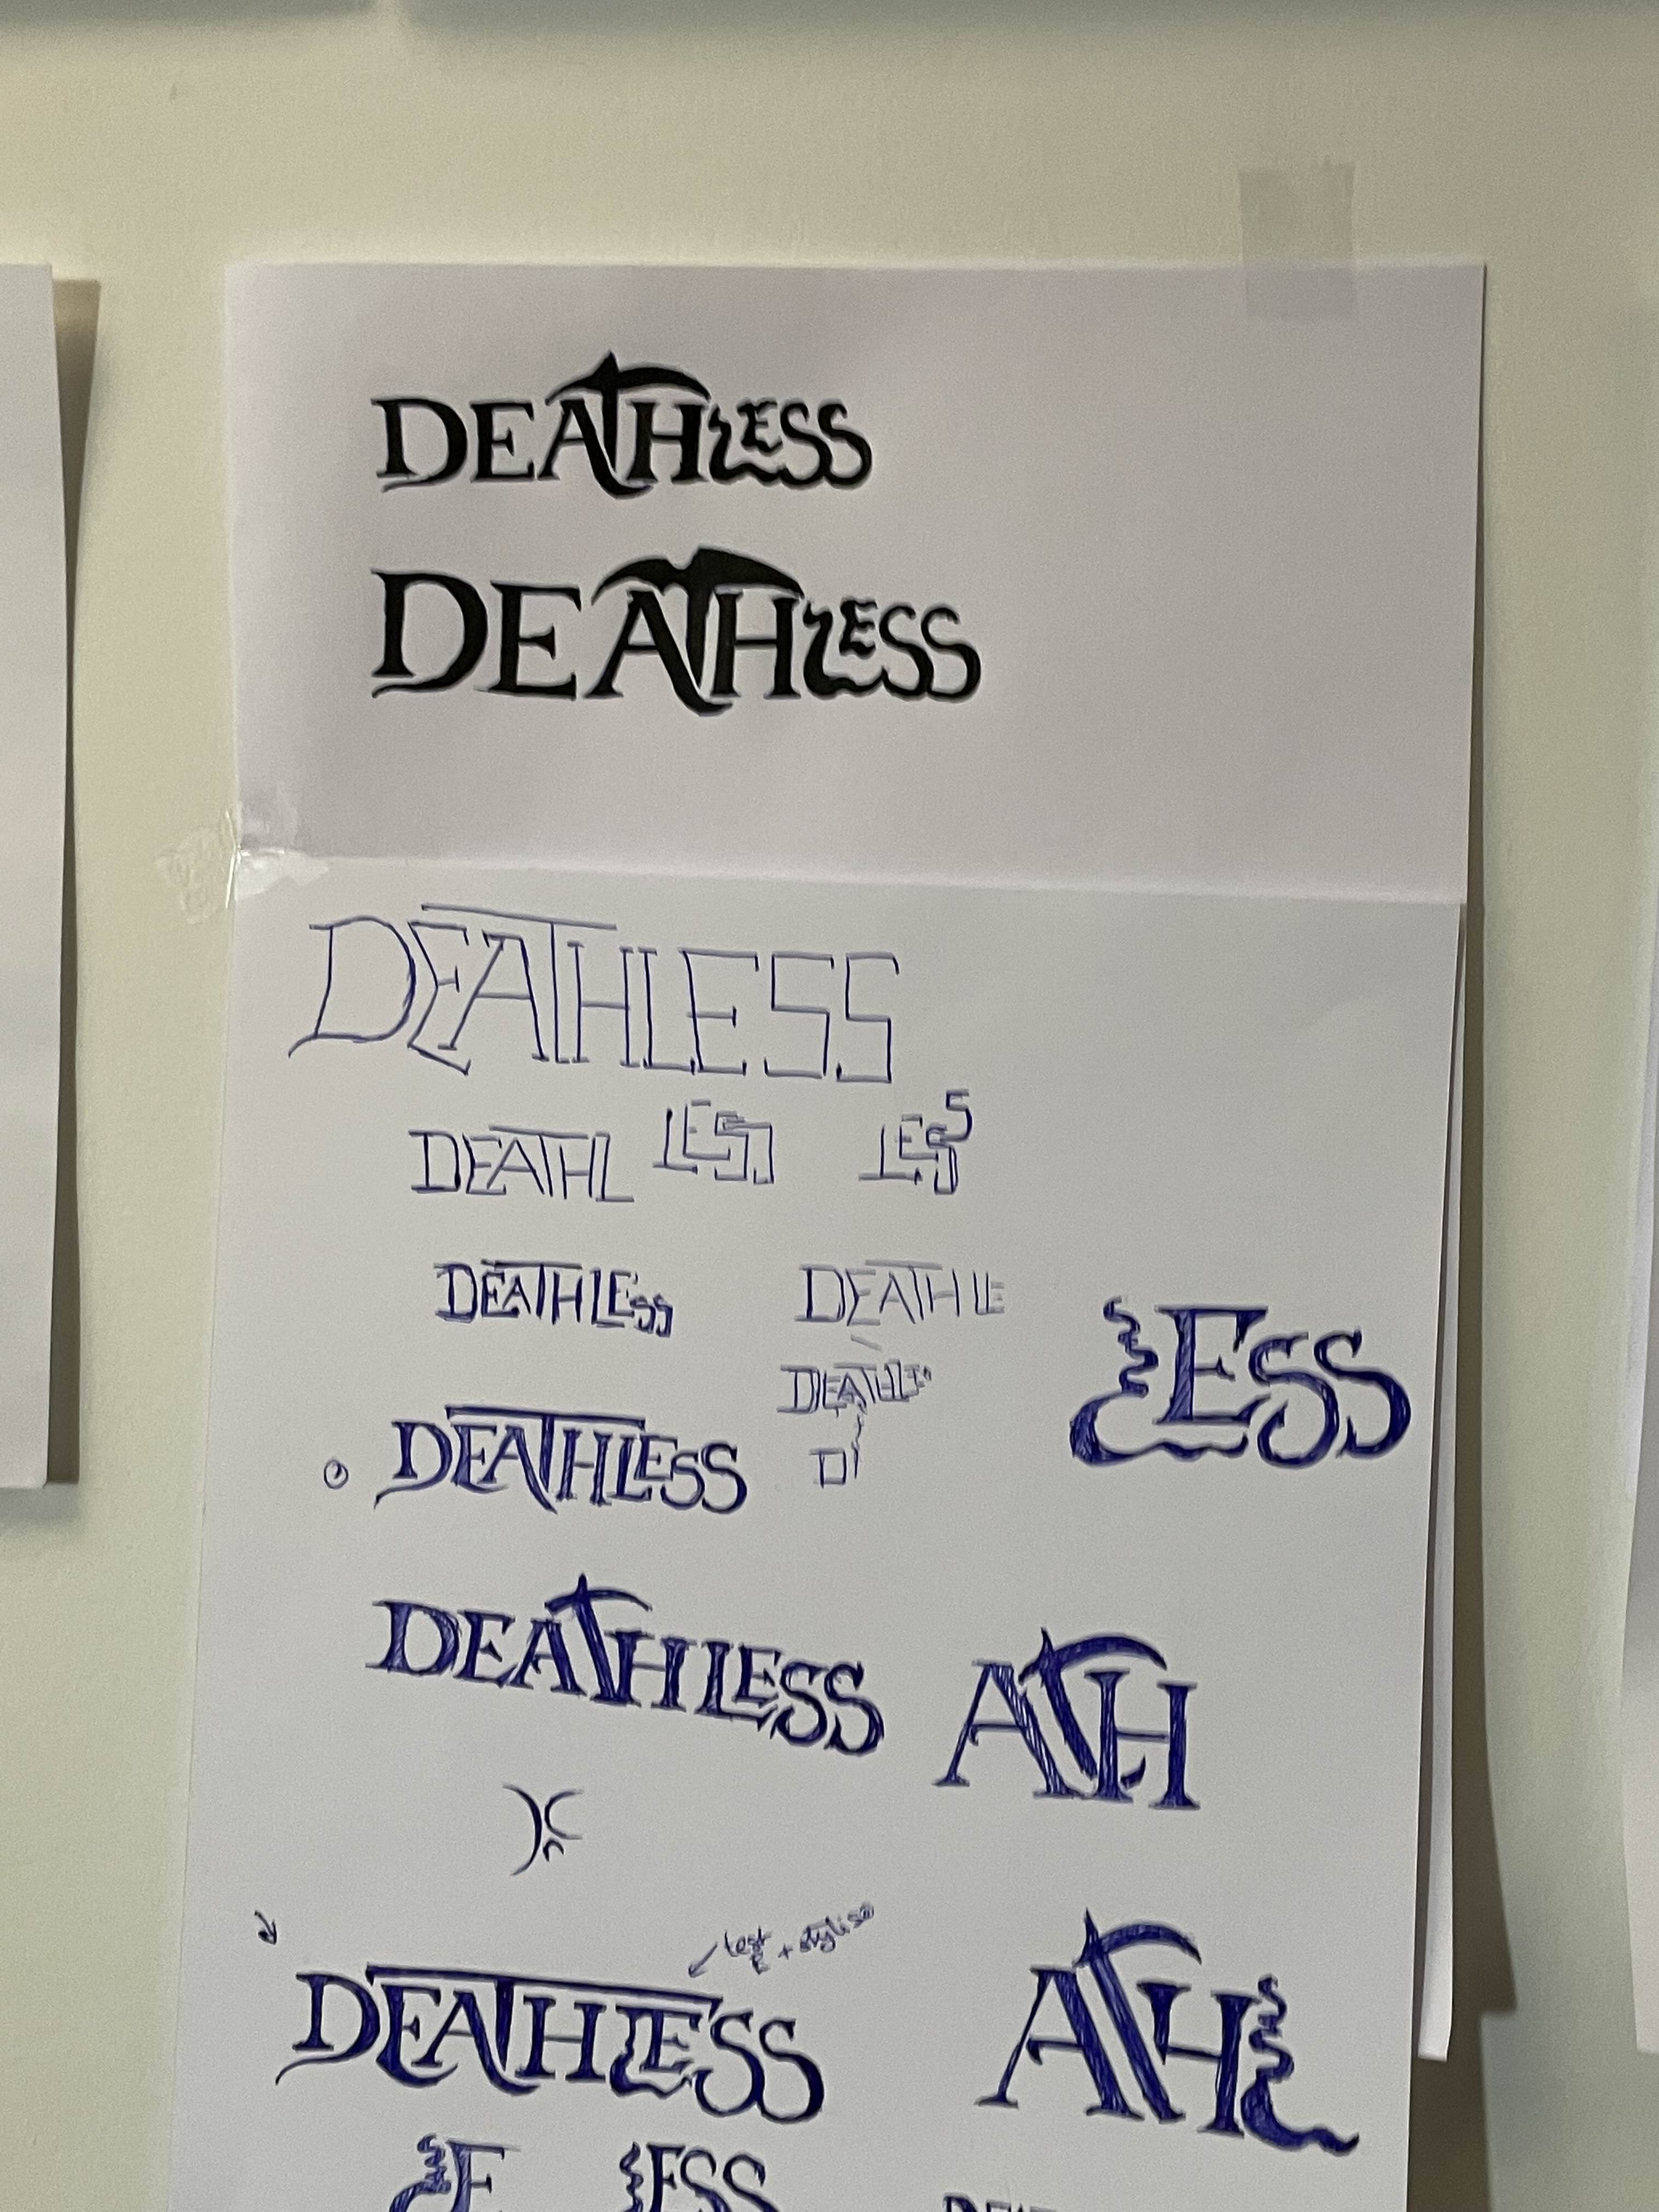 DEATHLESS
DEATHLESS
DEATHLESS
DEATHL LESS LESS
DEATHLESS DEATHLE
ESS
DEATHLESS
DEATHLESS
ATH
test E + stylise
DEATHLESS
ATHL
LE LESS